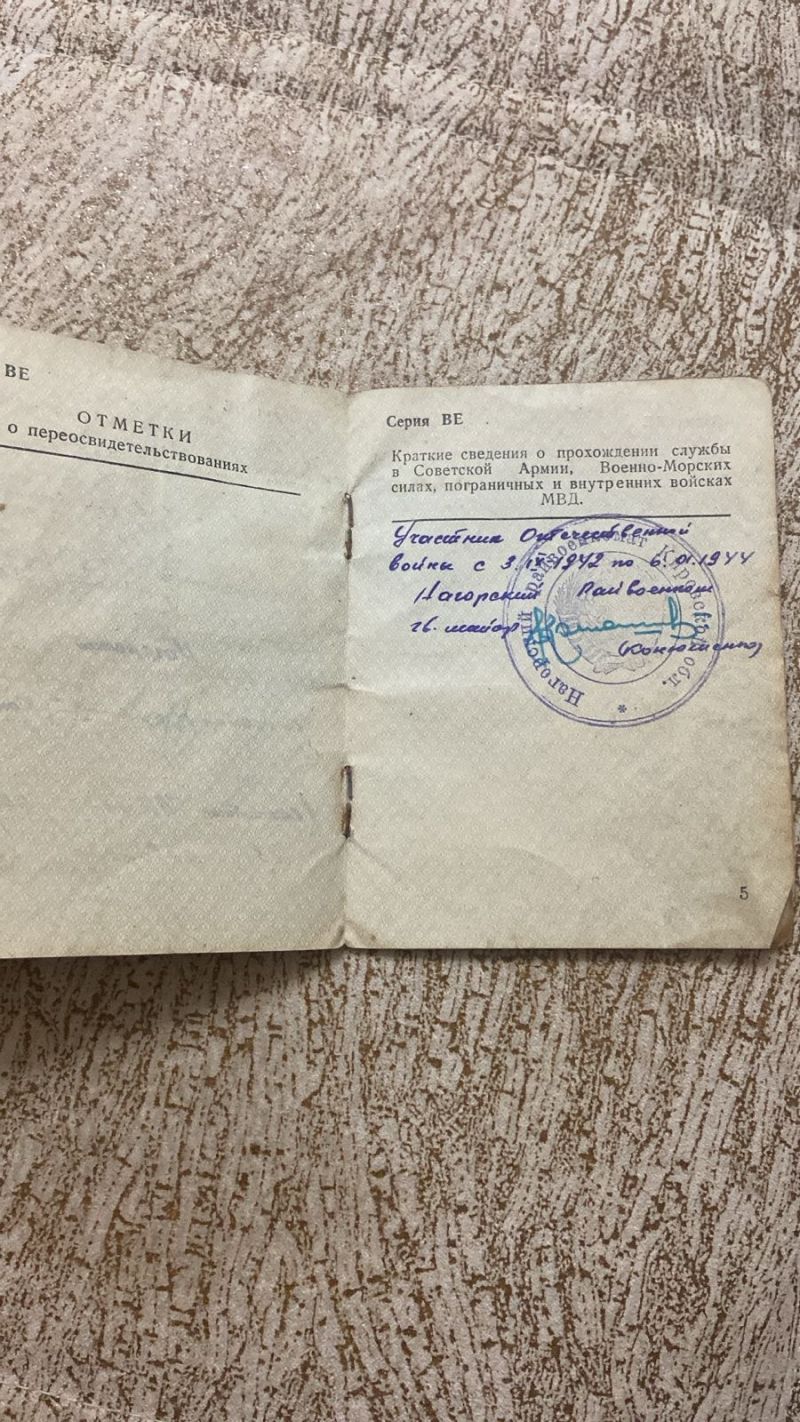 ВЕ
ОТМЕТКИ
о переосвидетельствованиях
Серия ВЕ
Краткие сведения о прохождении службы
в Советской Армии, Военно-Морских
силах, пограничных и внутренних войсках
МВД.
Участник Отечественной
войны с 3.IX.1942 по 6.01.1944
Нагорский Райвоенком
гв. майор
Нагорский райвоенкомат Кировской обл.
5